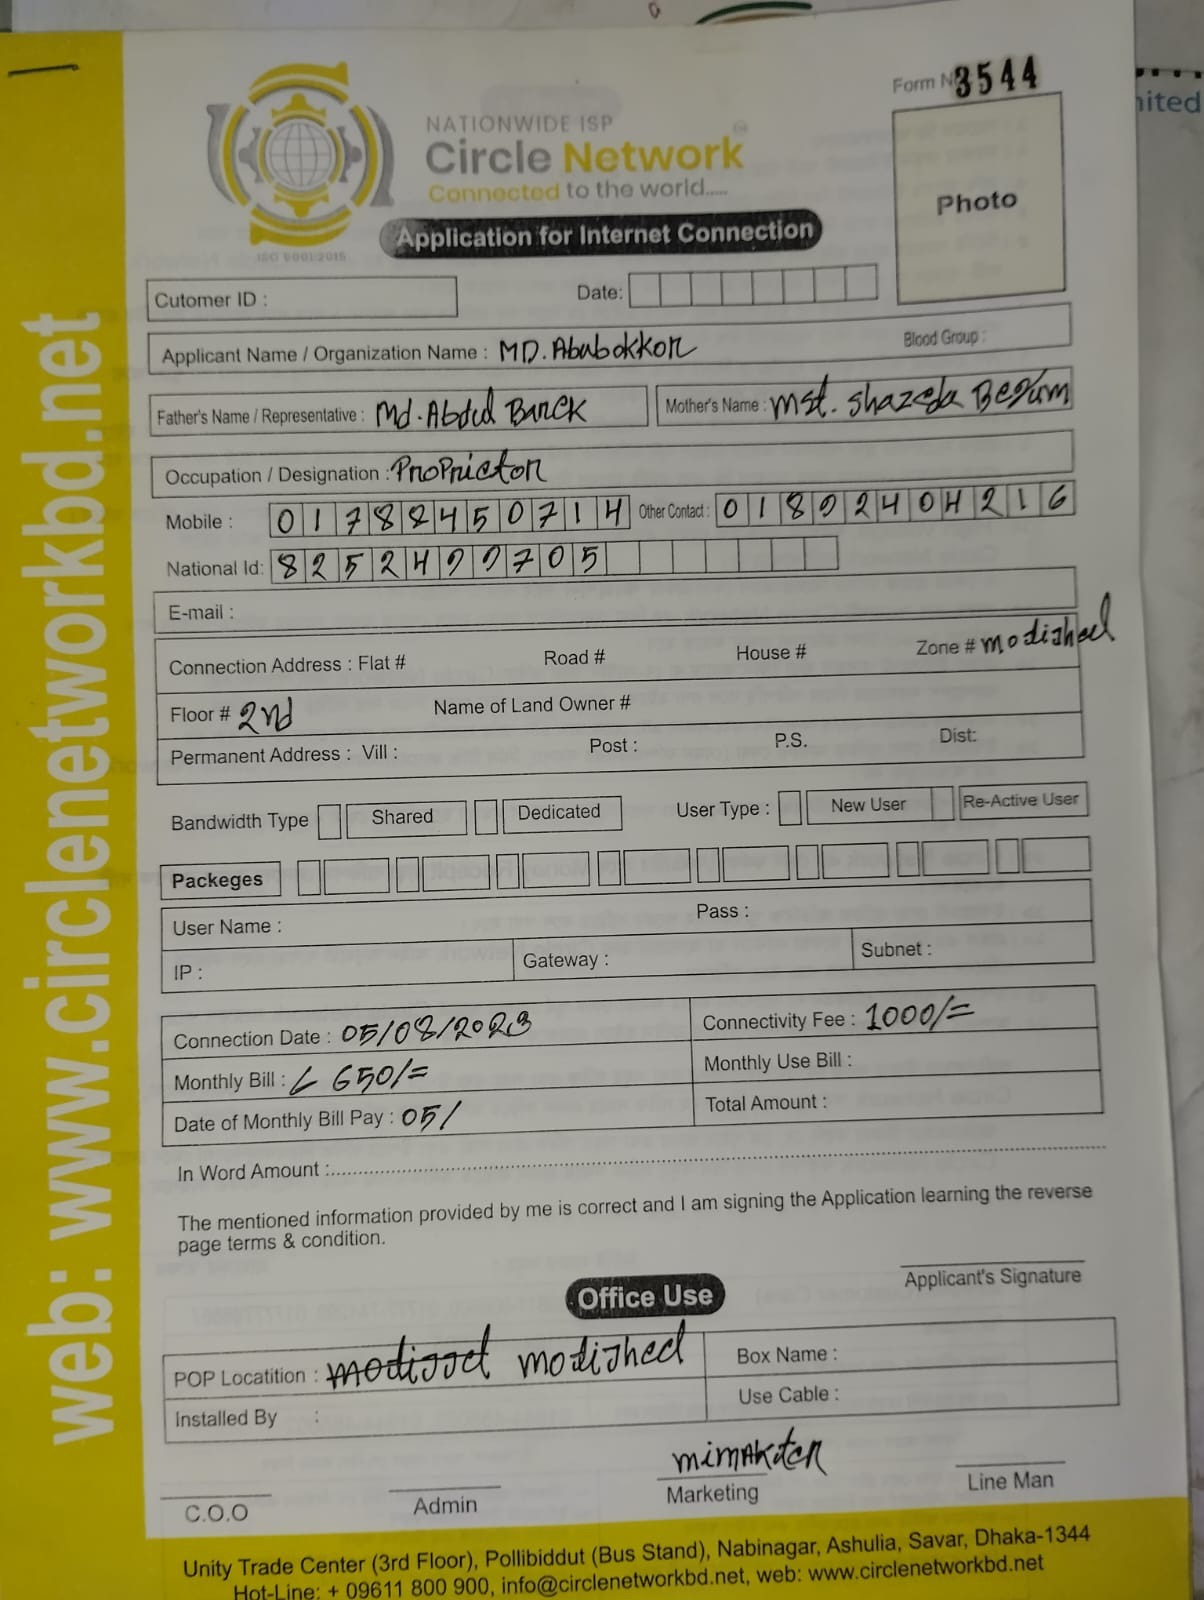 Form N 3544
NATIONWIDE ISP
Circle Network
Connected to the world.....
ISO 9001:2015
Application for Internet Connection
Photo
Cutomer ID :
Date:
Applicant Name / Organization Name : MD. Abubokkor
Blood Group :
Father's Name / Representative : Md. Abdul Barek
Mother's Name : Mst. Shazeda Begum
Occupation / Designation : Proprietor
Mobile : 01788450714 Other Contact : 01892404216
National Id: 8252499705
E-mail :
Connection Address : Flat # Road # House # Zone #
Floor # 2nd Name of Land Owner #
Permanent Address : Vill : Post : P.S. Dist:
Bandwidth Type Shared Dedicated User Type : New User Re-Active User
Packeges
User Name : Pass :
IP : Gateway : Subnet :
Connection Date : 05/08/2023 Connectivity Fee : 1000/=
Monthly Bill : 650/= Monthly Use Bill :
Date of Monthly Bill Pay : 05/ Total Amount :
In Word Amount :
The mentioned information provided by me is correct and I am signing the Application learning the reverse
page terms & condition.
Applicant's Signature
Office Use
POP Locatition : Box Name :
Installed By : Use Cable :
mimAkter
C.O.O Admin Marketing Line Man
Unity Trade Center (3rd Floor), Pollibiddut (Bus Stand), Nabinagar, Ashulia, Savar, Dhaka-1344
Hot-Line: + 09611 800 900, info@circlenetworkbd.net, web: www.circlenetworkbd.net
web: www.circlenetworkbd.net